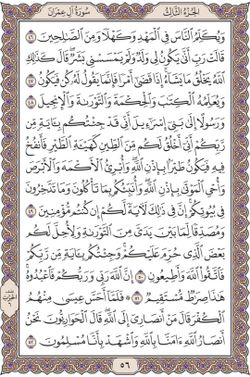 سُورَةُ آلِ عِمْرَانَ الجُزْءُ الثَّالِثُ
وَيُكَلِّمُ النَّاسَ فِي الْمَهْدِ وَكَهْلًا وَمِنَ الصَّالِحِينَ ٤٦
قَالَتْ رَبِّ أَنَّى يَكُونُ لِي وَلَدٌ وَلَمْ يَمْسَسْنِي بَشَرٌ قَالَ كَذَلِكِ
اللَّهُ يَخْلُقُ مَا يَشَاءُ إِذَا قَضَى أَمْرًا فَإِنَّمَا يَقُولُ لَهُ كُنْ فَيَكُونُ ٤٧
وَيُعَلِّمُهُ الْكِتَابَ وَالْحِكْمَةَ وَالتَّوْرَاةَ وَالْإِنْجِيلَ ٤٨
وَرَسُولًا إِلَى بَنِي إِسْرَائِيلَ أَنِّي قَدْ جِئْتُكُمْ بِآيَةٍ مِنْ
رَبِّكُمْ أَنِّي أَخْلُقُ لَكُمْ مِنَ الطِّينِ كَهَيْئَةِ الطَّيْرِ فَأَنْفُخُ
فِيهِ فَيَكُونُ طَيْرًا بِإِذْنِ اللَّهِ وَأُبْرِئُ الْأَكْمَهَ وَالْأَبْرَصَ
وَأُحْيِ الْمَوْتَى بِإِذْنِ اللَّهِ وَأُنَبِّئُكُمْ بِمَا تَأْكُلُونَ وَمَا تَدَّخِرُونَ
فِي بُيُوتِكُمْ إِنَّ فِي ذَلِكَ لَآيَةً لَكُمْ إِنْ كُنْتُمْ مُؤْمِنِينَ ٤٩
وَمُصَدِّقًا لِمَا بَيْنَ يَدَيَّ مِنَ التَّوْرَاةِ وَلِأُحِلَّ لَكُمْ
بَعْضَ الَّذِي حُرِّمَ عَلَيْكُمْ وَجِئْتُكُمْ بِآيَةٍ مِنْ رَبِّكُمْ
فَاتَّقُوا اللَّهَ وَأَطِيعُونِ ٥٠ إِنَّ اللَّهَ رَبِّي وَرَبُّكُمْ فَاعْبُدُوهُ
هَذَا صِرَاطٌ مُسْتَقِيمٌ ٥١ فَلَمَّا أَحَسَّ عِيسَى مِنْهُمُ
الْكُفْرَ قَالَ مَنْ أَنْصَارِي إِلَى اللَّهِ قَالَ الْحَوَارِيُّونَ نَحْنُ
أَنْصَارُ اللَّهِ آمَنَّا بِاللَّهِ وَاشْهَدْ بِأَنَّا مُسْلِمُونَ ٥٢
٥٦